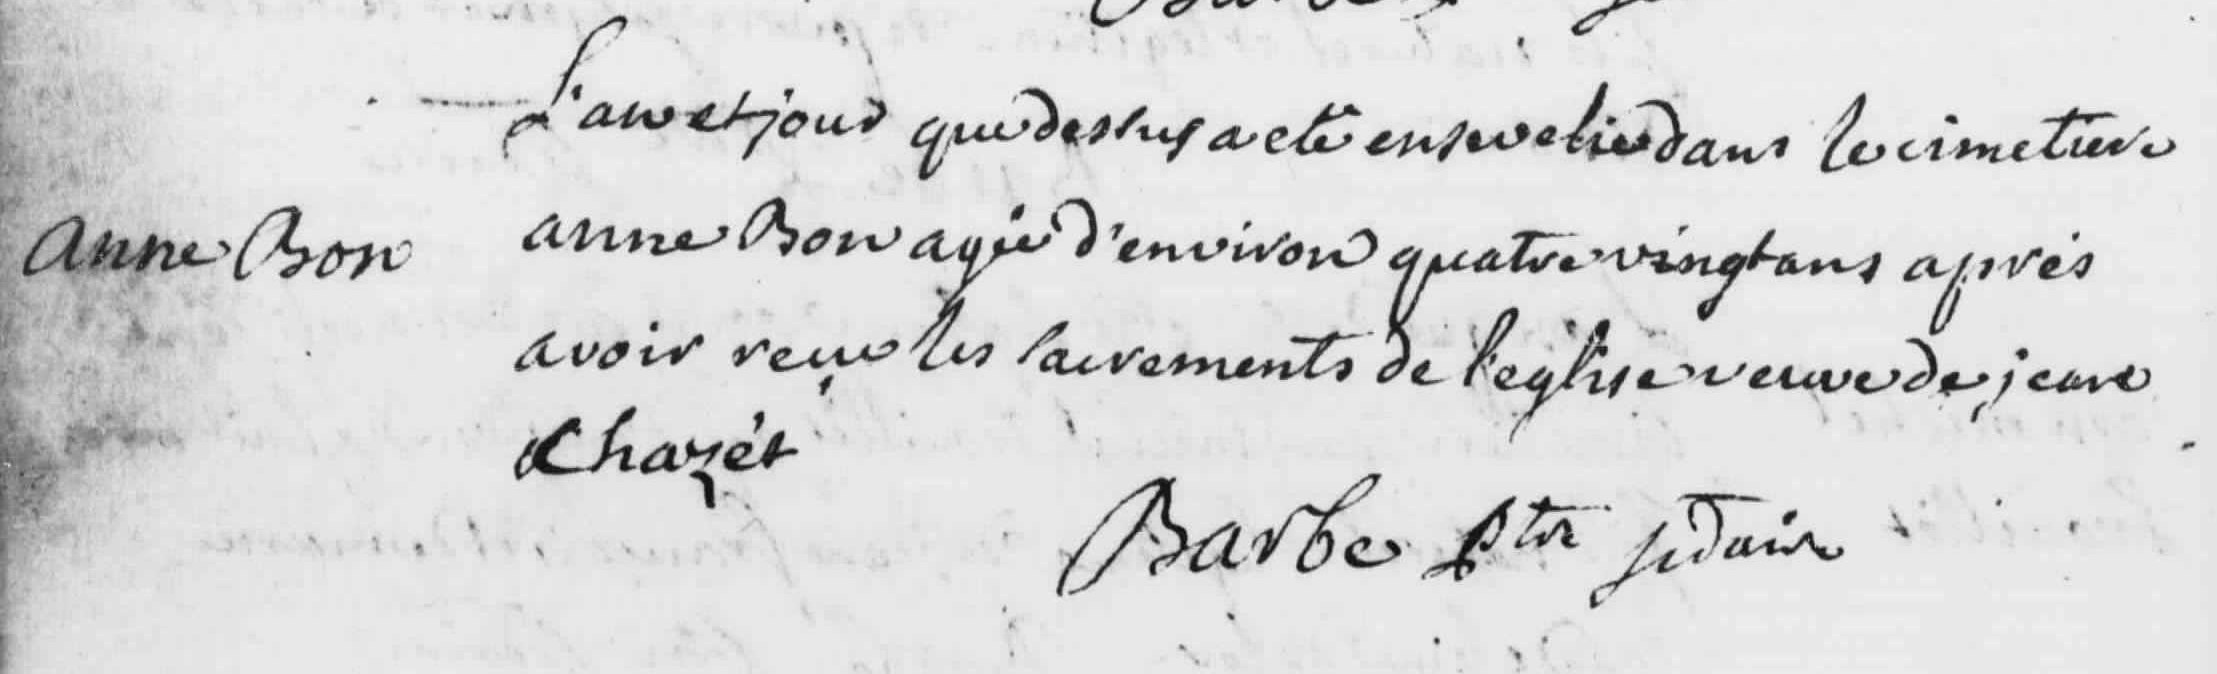 L'an et jour que dessus a eté ensevelie dans le cimetiere
Anne Bon
anne Bon agée d'environ quatre vingt ans aprés
avoir reçu les sacrements de l'eglise veuve de jean
Chazét
Barbe ptre